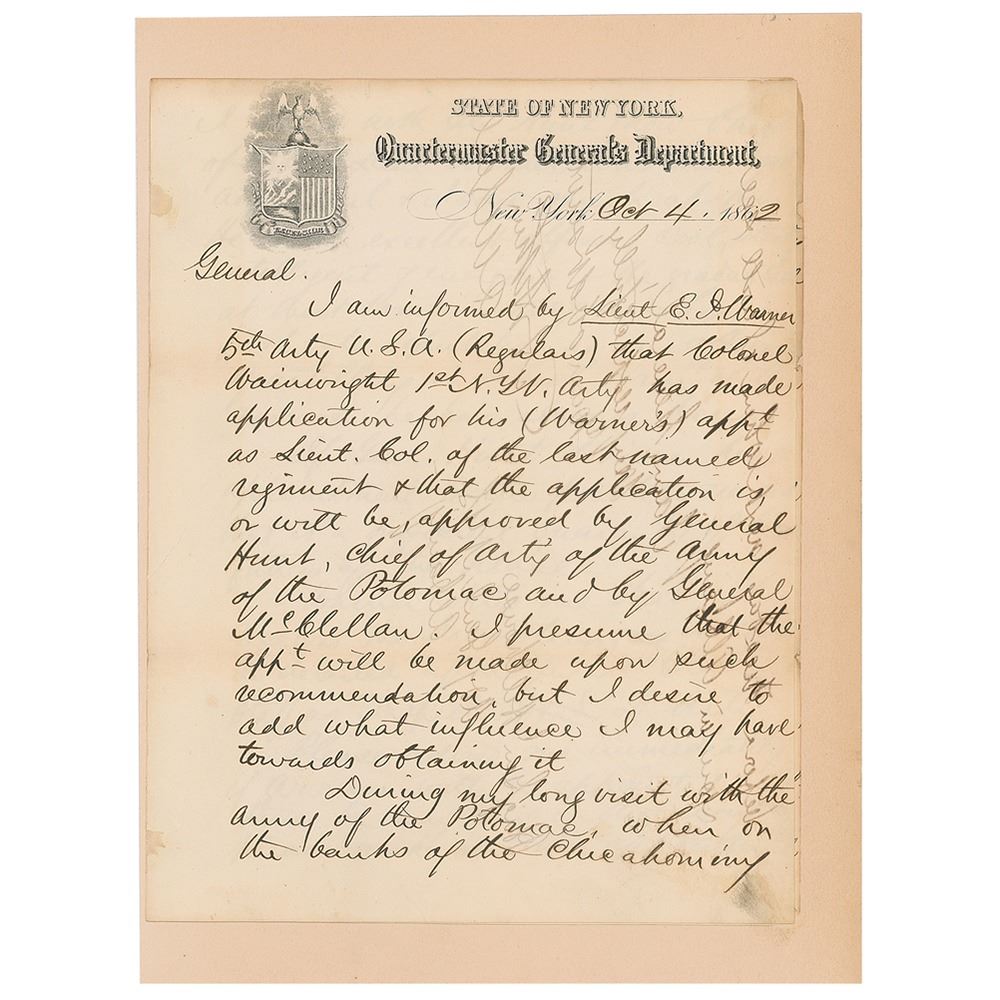 STATE OF NEW YORK,
Quartermaster General's Department,
New York Oct 4. 1862
EXCELSIOR
General.
I am informed by Lieut E. D. Warner
5th Arty U.S.A. (Regulars) that Colonel
Wainwright 1st N.Y.V. Arty has made
application for his (Warner's) appt
as Lieut. Col. of the last named
regiment & that the application is,
or will be, approved by General
Hunt, Chief of Arty of the Army
of the Potomac and by General
McClellan. I presume that the
appt will be made upon such
recommendation, but I desire to
add what influence I may have
towards obtaining it
During my long visit with the
Army of the Potomac, when on
the banks of the Chicahominy